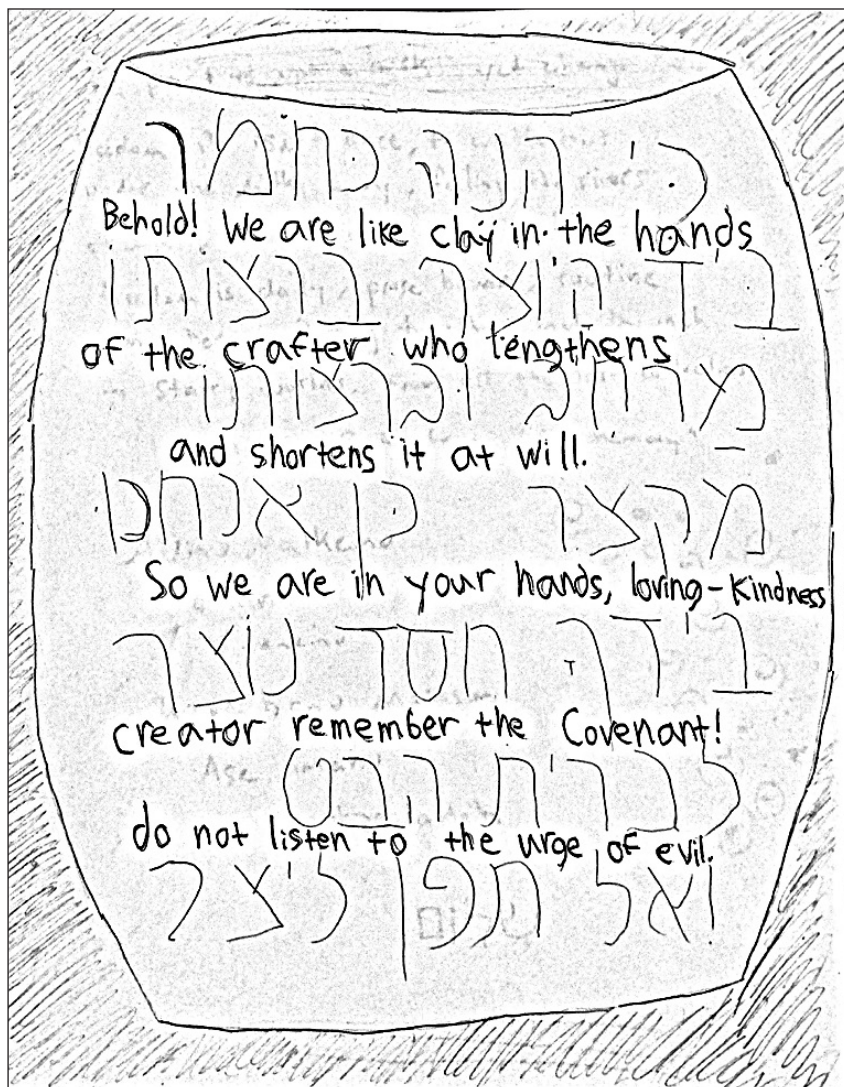 כי הנה כחומר
Behold! We are like clay in the hands
ביד היוצר ברצותו
of the crafter who lengthens
מרחיב וברצותו
and shortens it at will.
מקצר כן אנחנו
So we are in your hands, loving-kindness
בידך חסד נוצר
creator remember the Covenant!
לברית הבט
do not listen to the urge of evil.
ואל תפן ליצר